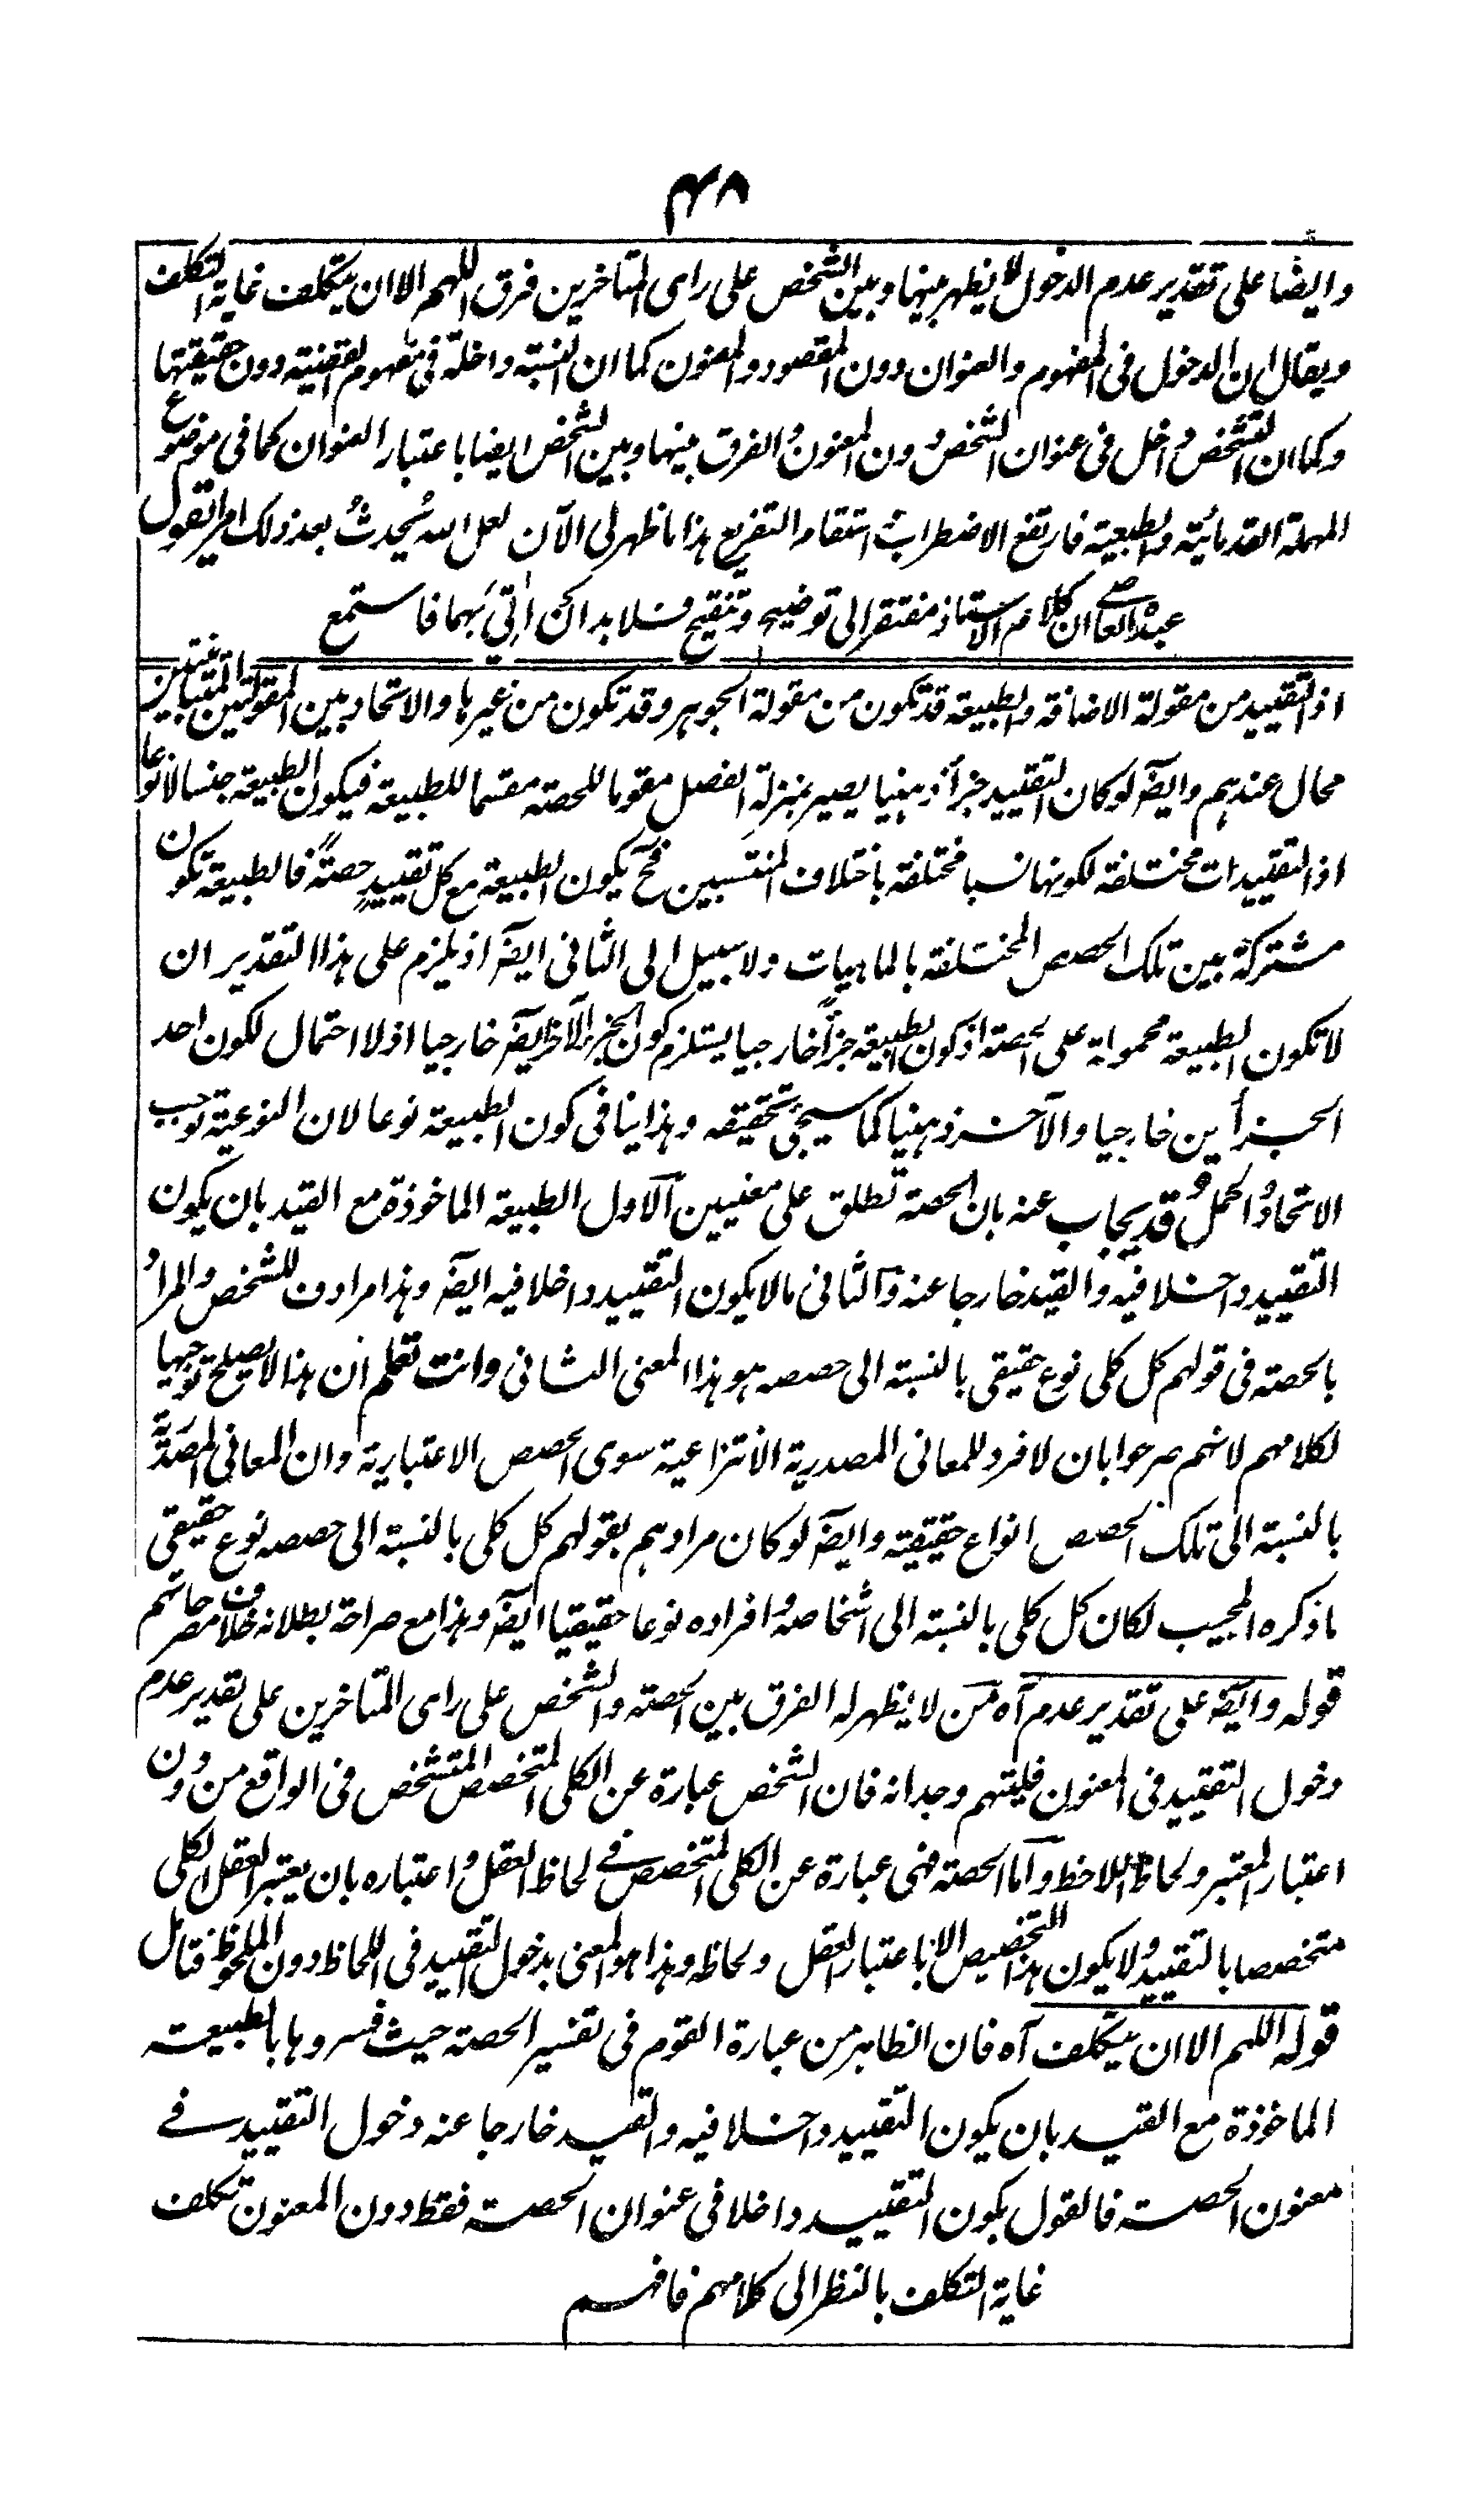 ٤٨
وايضا على تقدير عدم الدخول لا يظهر بينها وبين الشخص على راى المتاخرين فرق اللهم الا ان يتكلف غاية التكلف
ويقال ان الدخول فى المفهوم والعنوان دون المقصود والمعنون كما ان النسبة داخلة فى مفهوم القضية دون حقيقتها
وكما ان التشخص داخل فى عنوان الشخص دون المعنون والفرق بينها وبين الشخص ايضا باعتبار العنوان كما فى موضوع
المهملة القدمائية والطبعية فارتفع الاضطراب واستقام التفريع هذا ما ظهر لى الآن لعل الله يُحدثُ بعد ذلك امرا يقول
عبده العاصى ان كلام الاستاذ مفتقر الى توضيح وتنقيح فلا بد ان آتى بهما فاستمع
اذ التقييد من مقولة الاضافة والطبيعة قد تكون من مقولة الجوهر وقد تكون من غيرها والاتحاد بين المقولتين المتباينتين
محال عندهم وايضا لو كان التقييد جزأ ذهنيا يصير بمنزلة الفصل مقوما للحصة مقسما للطبيعة فيكون الطبيعة جنسا لا نوعا
اذ التقييدات مختلفة لكونها نسبا مختلفة باختلاف المنتسبين فح يكون الطبيعة مع كل تقييدٍ حصةً فالطبيعة تكون
مشتركة بين تلك الحصص المختلفة بالماهيات ولا سبيل الى الثانى ايضا اذ يلزم على هذا التقدير ان
لا تكون الطبيعة محمولة على الحصة اذ كون الطبيعة جزأً خارجيا يستلزم كون الجزء الآخر ايضا خارجيا اذ لا احتمال لكون احد
الجزأين خارجيا والآخر ذهنيا كما سيجئ تحقيقه وهذا ينافى كون الطبيعة نوعا لان النوعية توجب
الاتحاد والحمل وقد يجاب عنه بان الحصة تطلق على معنيين الاول الطبيعة الماخوذة مع القيد بان يكون
التقييد داخلا فيه والقيد خارجا عنه والثانى ما لا يكون التقييد داخلا فيه ايضا وهذا مرادف للشخص والمراد
بالحصة فى قولهم كل كلى نوع حقيقى بالنسبة الى حصصه هو هذا المعنى الثانى وانت تعلم ان هذا لا يصلح توجيها
لكلامهم لانهم صرحوا بان لا فرد للمعانى المصدرية الانتزاعية سوى الحصص الاعتبارية وان المعانى المصدرية
بالنسبة الى تلك الحصص انواع حقيقية وايضا لو كان مرادهم بقولهم كل كلى بالنسبة الى حصصه نوع حقيقى
ما ذكره المجيب لكان كل كلى بالنسبة الى اشخاصه وافراده نوعا حقيقيا ايضا وهذا مع صراحة بطلانه خلاف مصرحاتهم
قوله وايضا على تقدير عدم آه من لا يظهر له الفرق بين الحصة والشخص على راى المتاخرين على تقدير عدم
دخول التقييد فى المعنون فليتهم وجدانه فان الشخص عبارة عن الكلى المتخصص المتشخص فى الواقع من دون
اعتبار المعتبر ولحاظ اللاحظ واما الحصة فهى عبارة عن الكلى المتخصص فى لحاظ العقل واعتباره بان يعتبر العقل الكلى
متخصصا بالتقييد ولا يكون هذا التخصيص الا باعتبار العقل ولحاظه وهذا هو المعنى بدخول التقييد فى اللحاظ دون الملحوظ فتامل
قوله اللهم الا ان يتكلف آه فان الظاهر من عبارة القوم فى تفسير الحصة حيث فسروها بالطبيعة
الماخوذة مع القيد بان يكون التقييد داخلا فيه والقيد خارجا عنه دخول التقييد فى
معنون الحصة فالقول بكون التقييد داخلا فى عنوان الحصة فقط دون المعنون تكلف
غاية التكلف بالنظر الى كلامهم فافهم